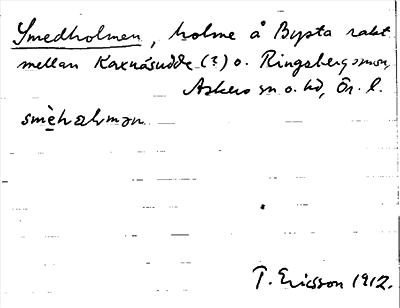 Smedholmen, holme å Bysta rakt
mellan Kaxnäsudde (?) o. Ringsbergsmon,
Askers sn o. hd, Ör. l.
smèhɷlmən
T. Ericsson 1912.